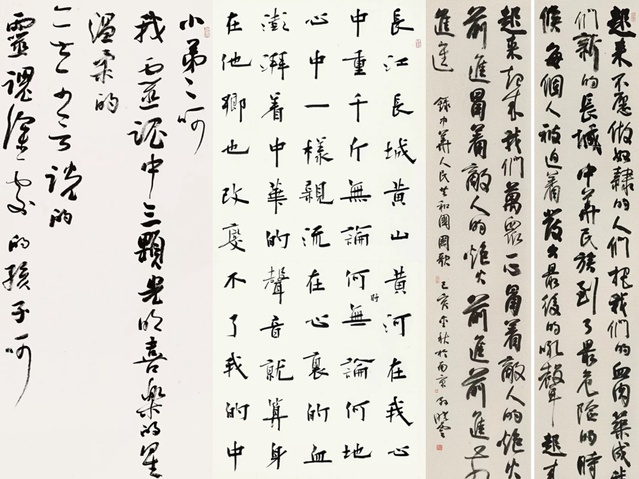 起来不愿做奴隸的人们把我们的血肉築成我
们新的長城中華民族到了最危险的時
候每個人被迫着發出最後的吼聲起来
起来起来我们萬眾一心冒着敵人的炮火
前進冒着敵人的炮火前進前進
進進
錄中華人民共和國國歌 己亥 秋於南京 孙晓云
長江長城黄山黄河在我心
中重千斤無論何时無論何地
心中一樣親流在心裏的血
澎湃着中華的聲音就算身
在他鄉也改變不了我的中
小弟々呵
我靈魂中三顆光明喜樂的星
温柔的
无可言说的
靈魂深處的孩子呵